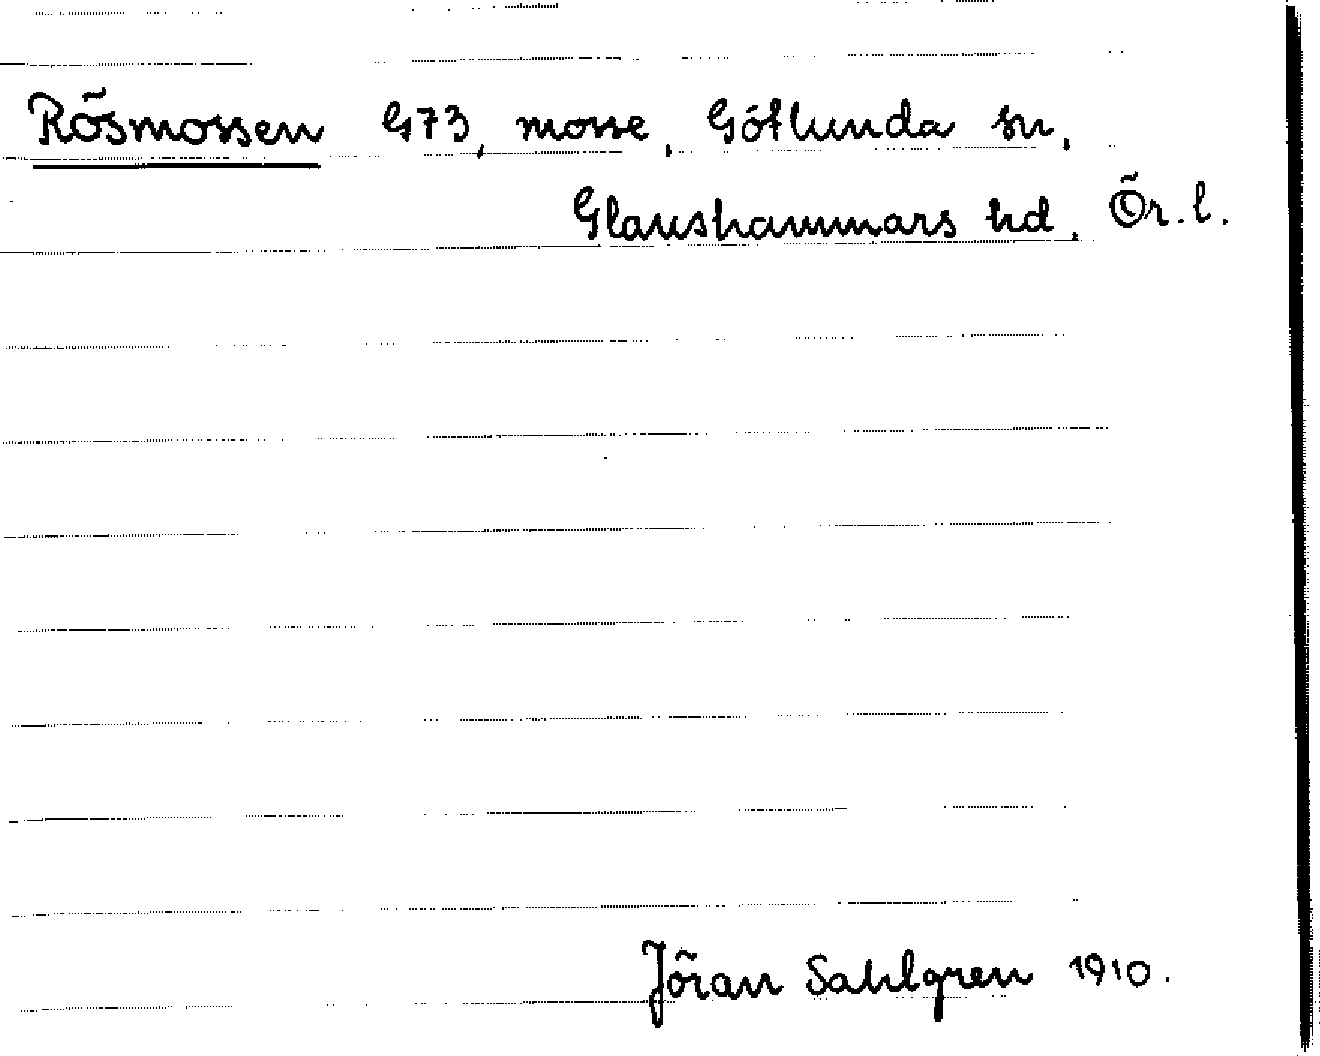 Rösmossen G73, mosse, Götlunda sn,
Glanshammars hd, Ör. l.
Jöran Sahlgren 1910.